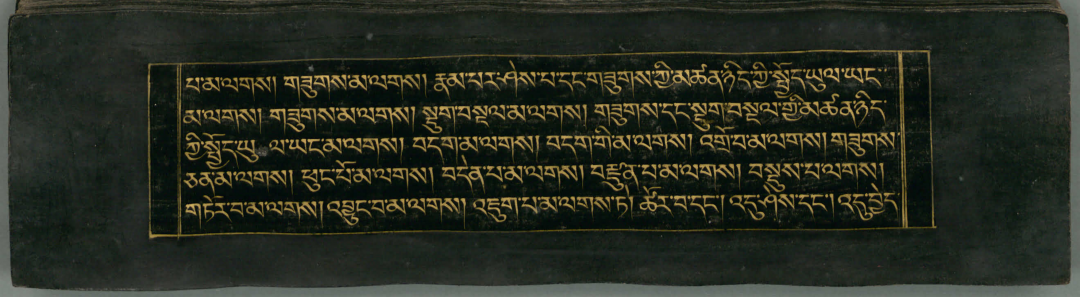 པ་མ་ལགས། གཟུགས་མ་ལགས། རྣམ་པར་ཤེས་པ་དང་གཟུགས་ཀྱི་མཚན་ཉིད་ཀྱི་སྤྱོད་ཡུལ་ཡང་
མ་ལགས། གཟུགས་མ་ལགས། སྡུག་བསྔལ་མ་ལགས། གཟུགས་དང་སྡུག་བསྔལ་གྱི་མཚན་ཉིད་
ཀྱི་སྤྱོད་ཡུ ལ་ཡང་མ་ལགས། བདག་མ་ལགས། བདག་གི་མ་ལགས། འགྲོ་བ་མ་ལགས། གཟུགས་
ཅན་མ་ལགས། ཕུང་པོ་མ་ལགས། བདེན་པ་མ་ལགས། བརྫུན་པ་མ་ལགས། བསྡུས་པ་ལགས།
གཏེར་བ་མ་ལགས། འབྱུང་བ་མ་ལགས། འཇུག་པ་མ་ལགས་ཏེ། ཚོར་བ་དང་། འདུ་ཤེས་དང་། འདུ་བྱེད་